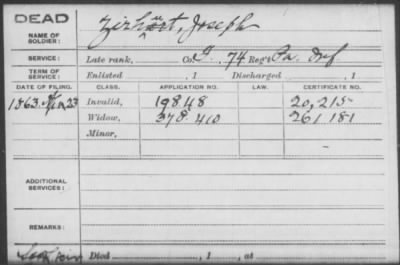 DEAD
NAME OF SOLDIER: Zirhart, Joseph
SERVICE: Late rank, Co. 74 Reg't Pa. Inf
TERM OF SERVICE: Enlisted , 1 Discharged , 1
DATE OF FILING. CLASS. APPLICATION NO. LAW. CERTIFICATE NO.
1863 23 Invalid, 19848 20,215
Widow, 378.410 261 181
Minor,
ADDITIONAL SERVICES:
REMARKS:
Died , 1 , at